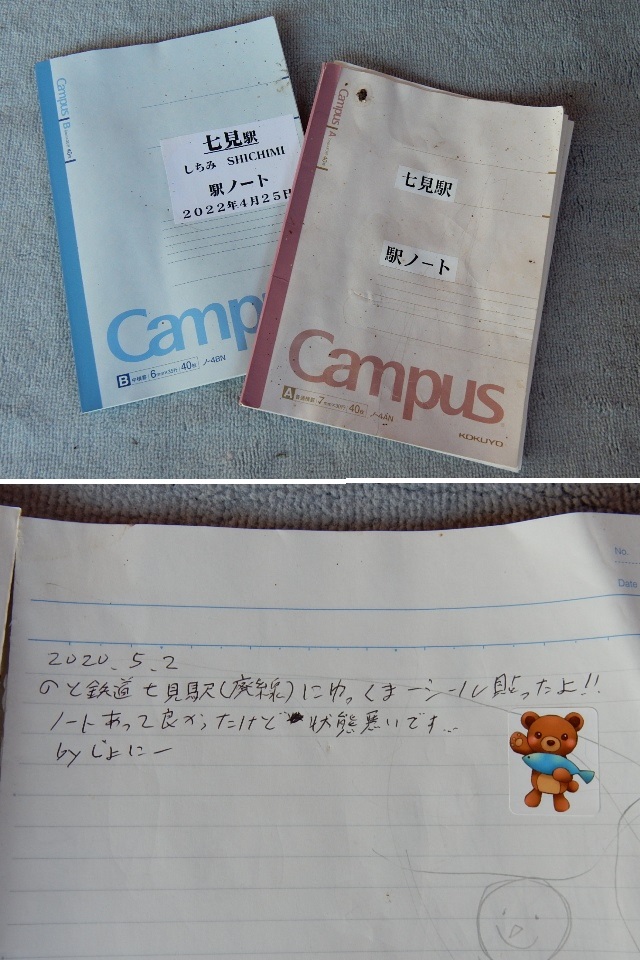 Campus
B
七見駅
しちみ SHICHIMI
駅ノート
2022年4月25日
Campus
B 中横罫 6mm×35行 40枚 ノ-4BN
Campus
A
七見駅
駅ノート
Campus
A 普通横罫 7mm×30行 40枚 ノ-4AN
KOKUYO
No.
Date
2020.5.2
のと鉄道七見駅(廃線)にゆっくまーシール貼ったよ!!
ノートあって良かったけど 状態悪いです…
by じょにー